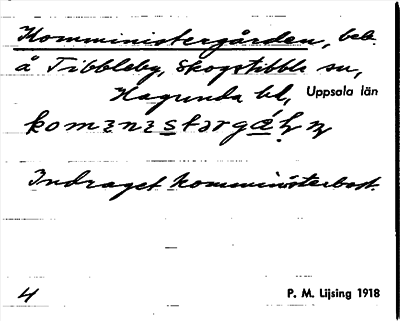 Komministergården, beb.
å Tibbleby, Skogstibble sn,
Hagunda hd, Uppsala län
Indraget komministerbost.
4 P. M. Lijsing 1918